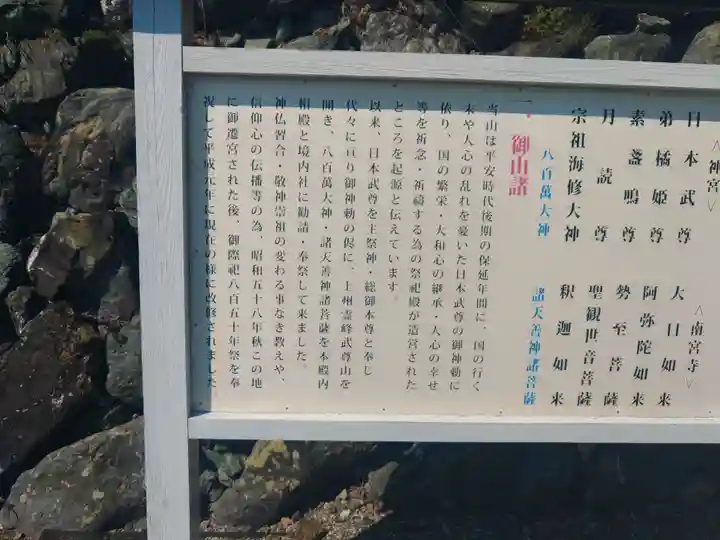 <神宮>
日本武尊
弟橘姫尊
素盞鳴尊
月読尊
宗祖海修大神
八百萬大神
<南宮寺>
大日如来
阿弥陀如来
勢至菩薩
聖観世音菩薩
釈迦如来
諸天善神諸菩薩
一、御山諸
当山は平安時代後期の保延年間に、国の行く
末や人心の乱れを憂いた日本武尊の御神勅に
依り、国の繁栄・大和心の継承・人心の幸せ
等を祈念・祈祷する為の祭祀殿が造営された
ところを起源と伝えています。
以来、日本武尊を主祭神・総御本尊と奉じ
代々に亘り御神勅の偈に、上州霊峰武尊山を
開き、八百萬大神・諸天善神諸菩薩を本殿内
相殿と境内社に勧請・奉祭して来ました。
神仏習合・敬神崇祖の変わる事なき教えや、
信仰心の伝播等の為、昭和五十八年秋この地
に御遷宮された後、御際祀八百五十年祭を奉
祝して平成元年に現在の様に改修されました